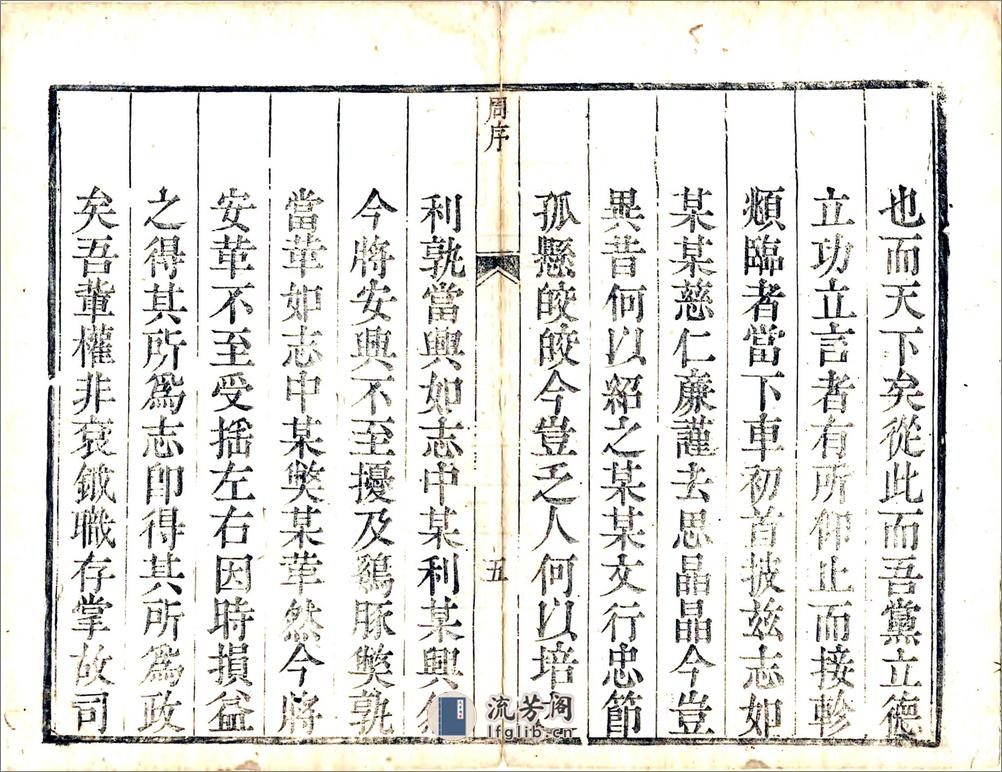 也而天下矣從此而吾黨立德
立功立言者有所仰止而接軫
頫臨者當下車初首披玆志如
某某慈仁廉謹去思晶晶今豈
異昔何以紹之某某文行忠節
孤懸皎皎今豈乏人何以培
周序
五
利孰當興如志中某利某興
今將安興不至擾及鷄豚獘孰
當革如志中某獘某革然今將
安革不至受揺左右因時損益
之得其所爲志卽得其所爲政
矣吾輩權非衮鉞職存掌故司
流芳阁
lfglib.cn